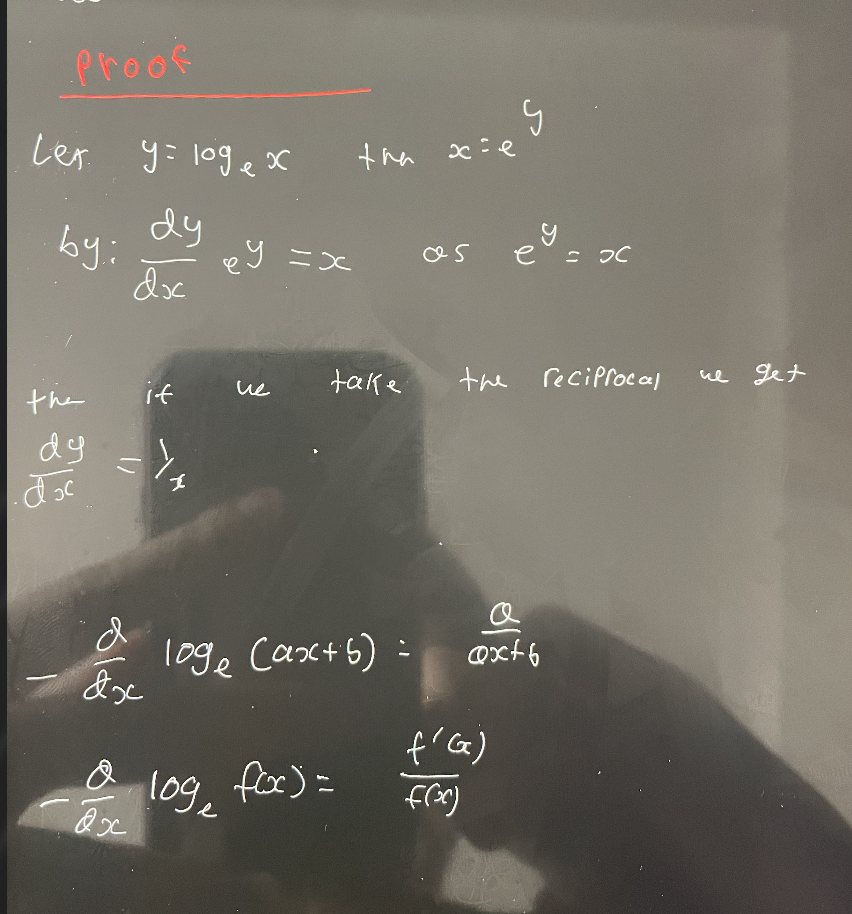 Proof
Let y = log_e x then x = e^y
by: dy/dx e^y = x as e^y = x
the if we take the reciprocal we get
dy/dx = 1/x
- d/dx log_e (ax+b) = a/ax+b
- d/dx log_e f(x) = f'(x)/f(x)